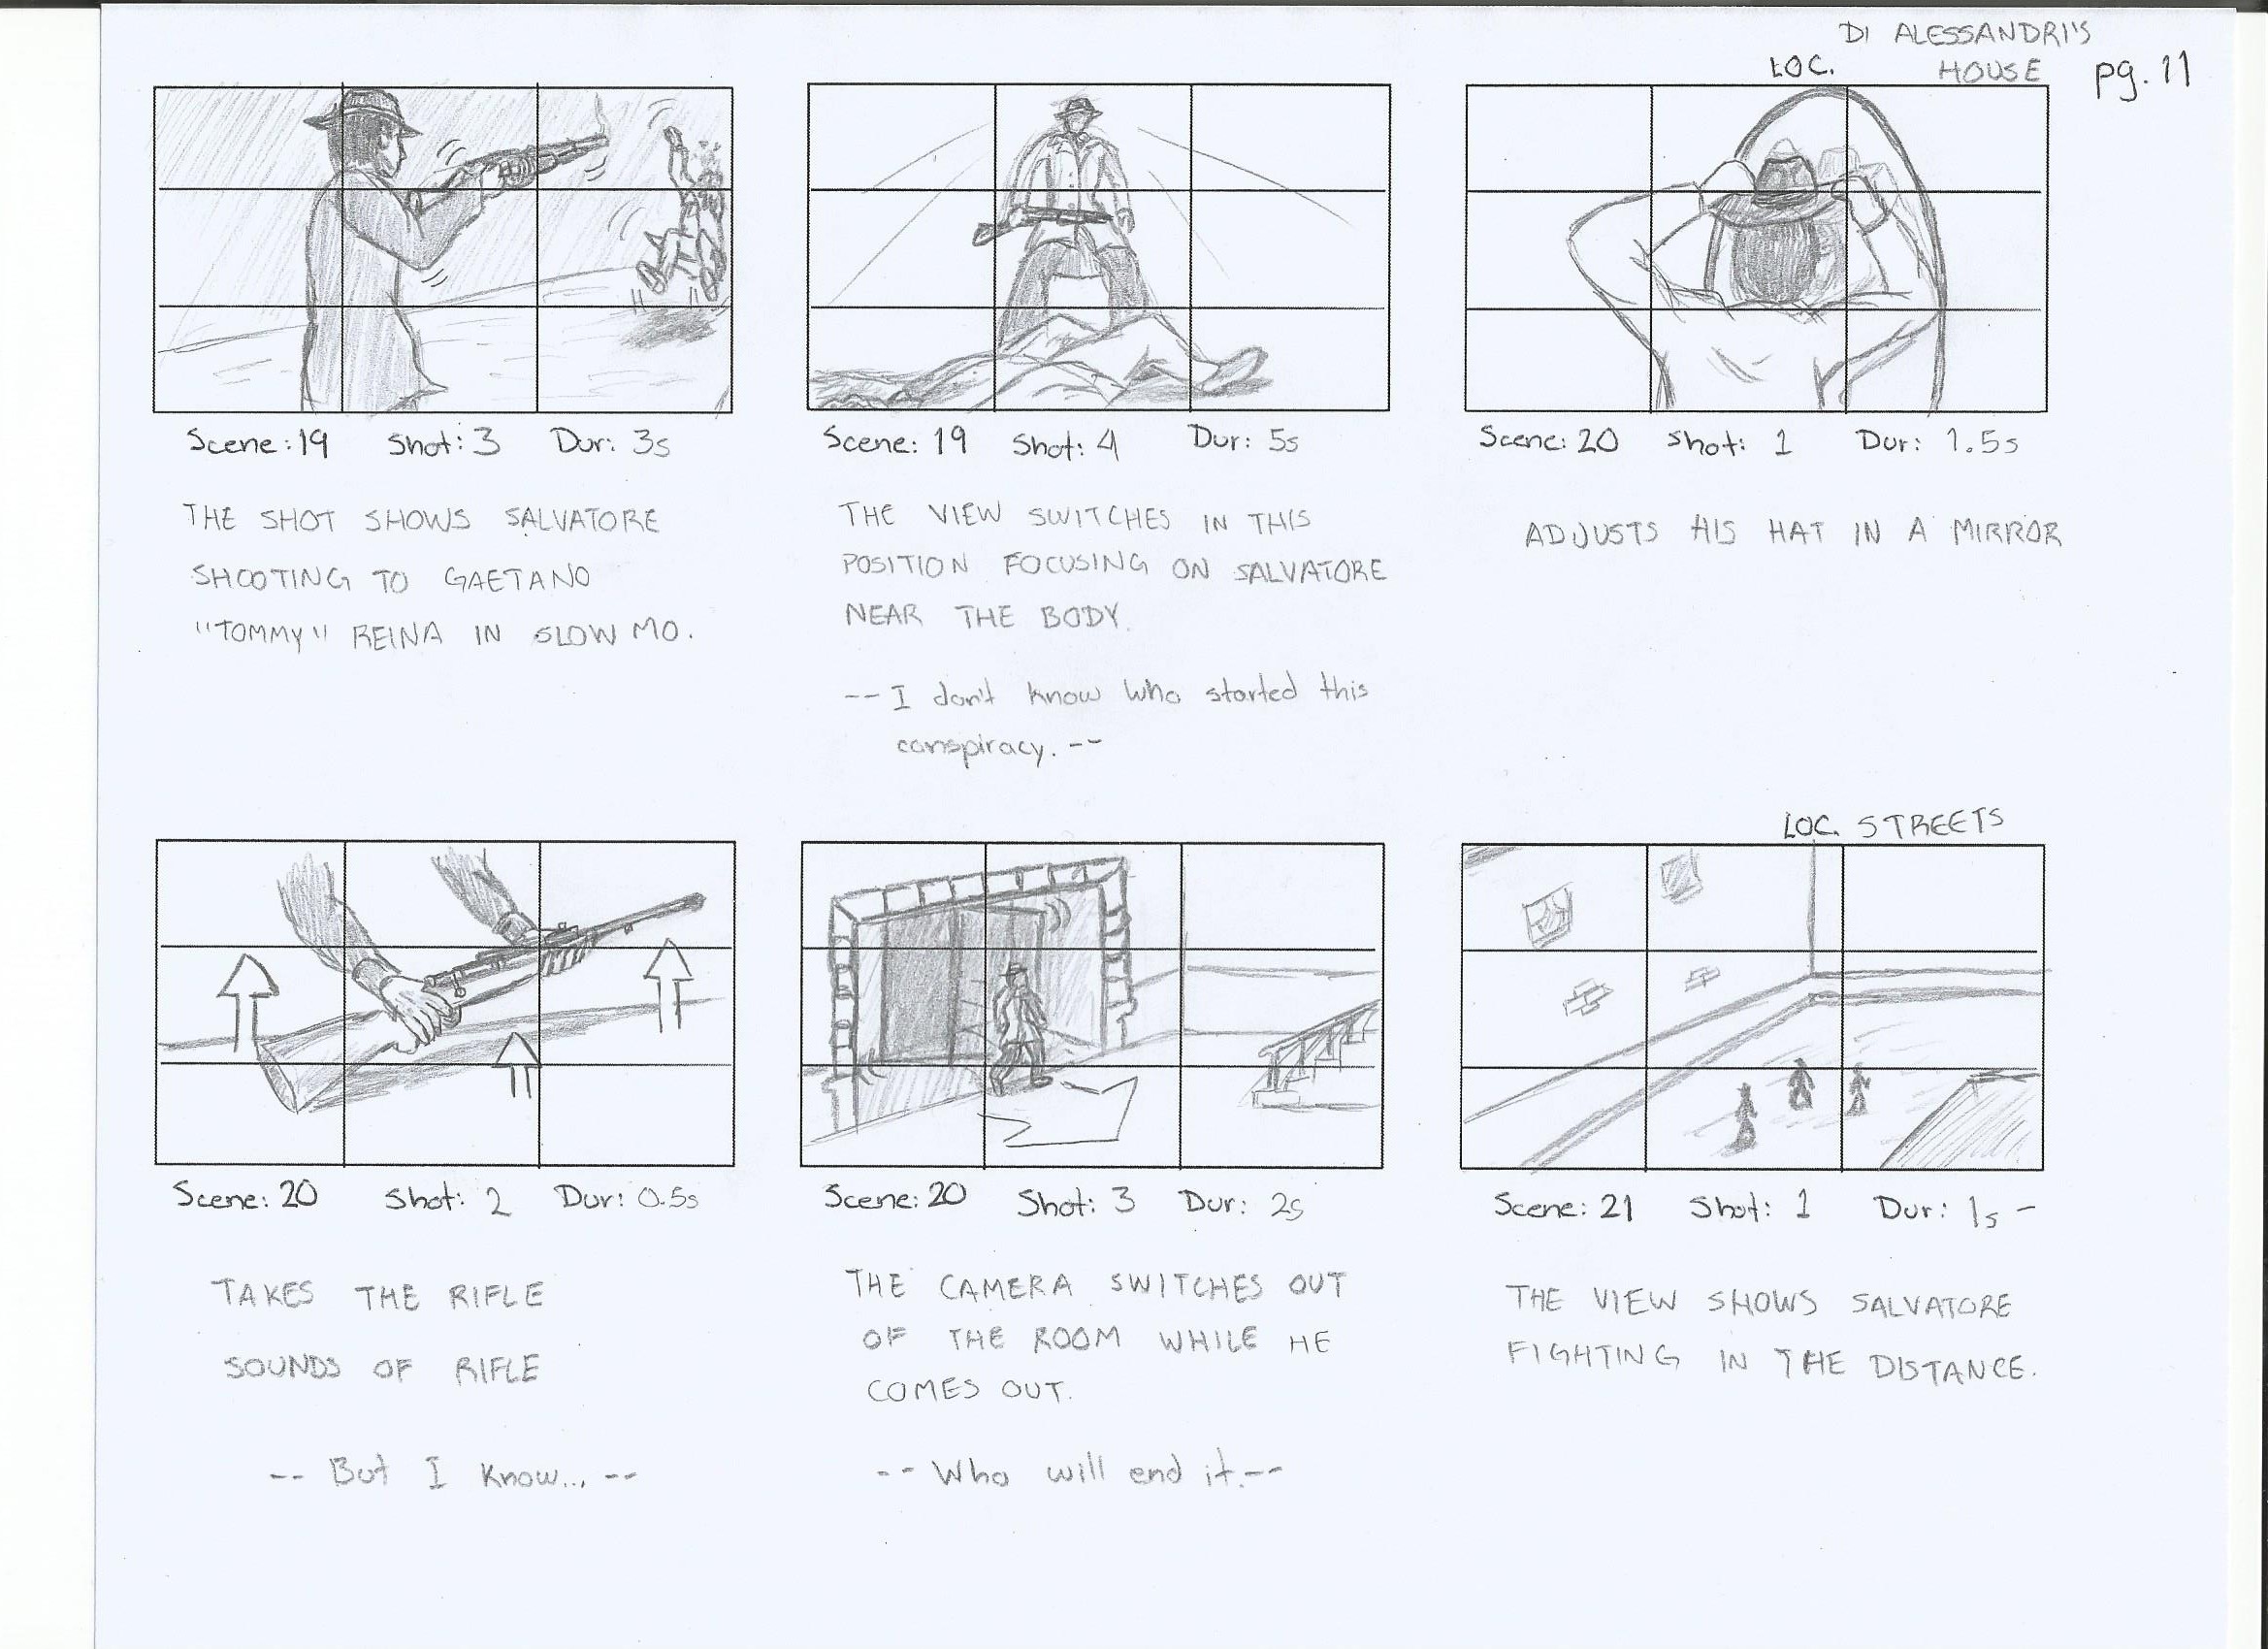 DI ALESSANDRI'S
LOC. HOUSE pg. 11
Scene: 19 Shot: 3 Dur: 3s
THE SHOT SHOWS SALVATORE
SHOOTING TO GAETANO
"TOMMY" REINA IN SLOW MO.
Scene: 19 Shot: 4 Dur: 5s
THE VIEW SWITCHES IN THIS
POSITION FOCUSING ON SALVATORE
NEAR THE BODY.
-- I don't know who started this
conspiracy. --
Scene: 20 Shot: 1 Dur: 1.5s
ADJUSTS HIS HAT IN A MIRROR
Scene: 20 Shot: 2 Dur: 0.5s
TAKES THE RIFLE
SOUNDS OF RIFLE
-- But I know... --
Scene: 20 Shot: 3 Dur: 2s
THE CAMERA SWITCHES OUT
OF THE ROOM WHILE HE
COMES OUT.
-- Who will end it. --
LOC. STREETS
Scene: 21 Shot: 1 Dur: 1s -
THE VIEW SHOWS SALVATORE
FIGHTING IN THE DISTANCE.